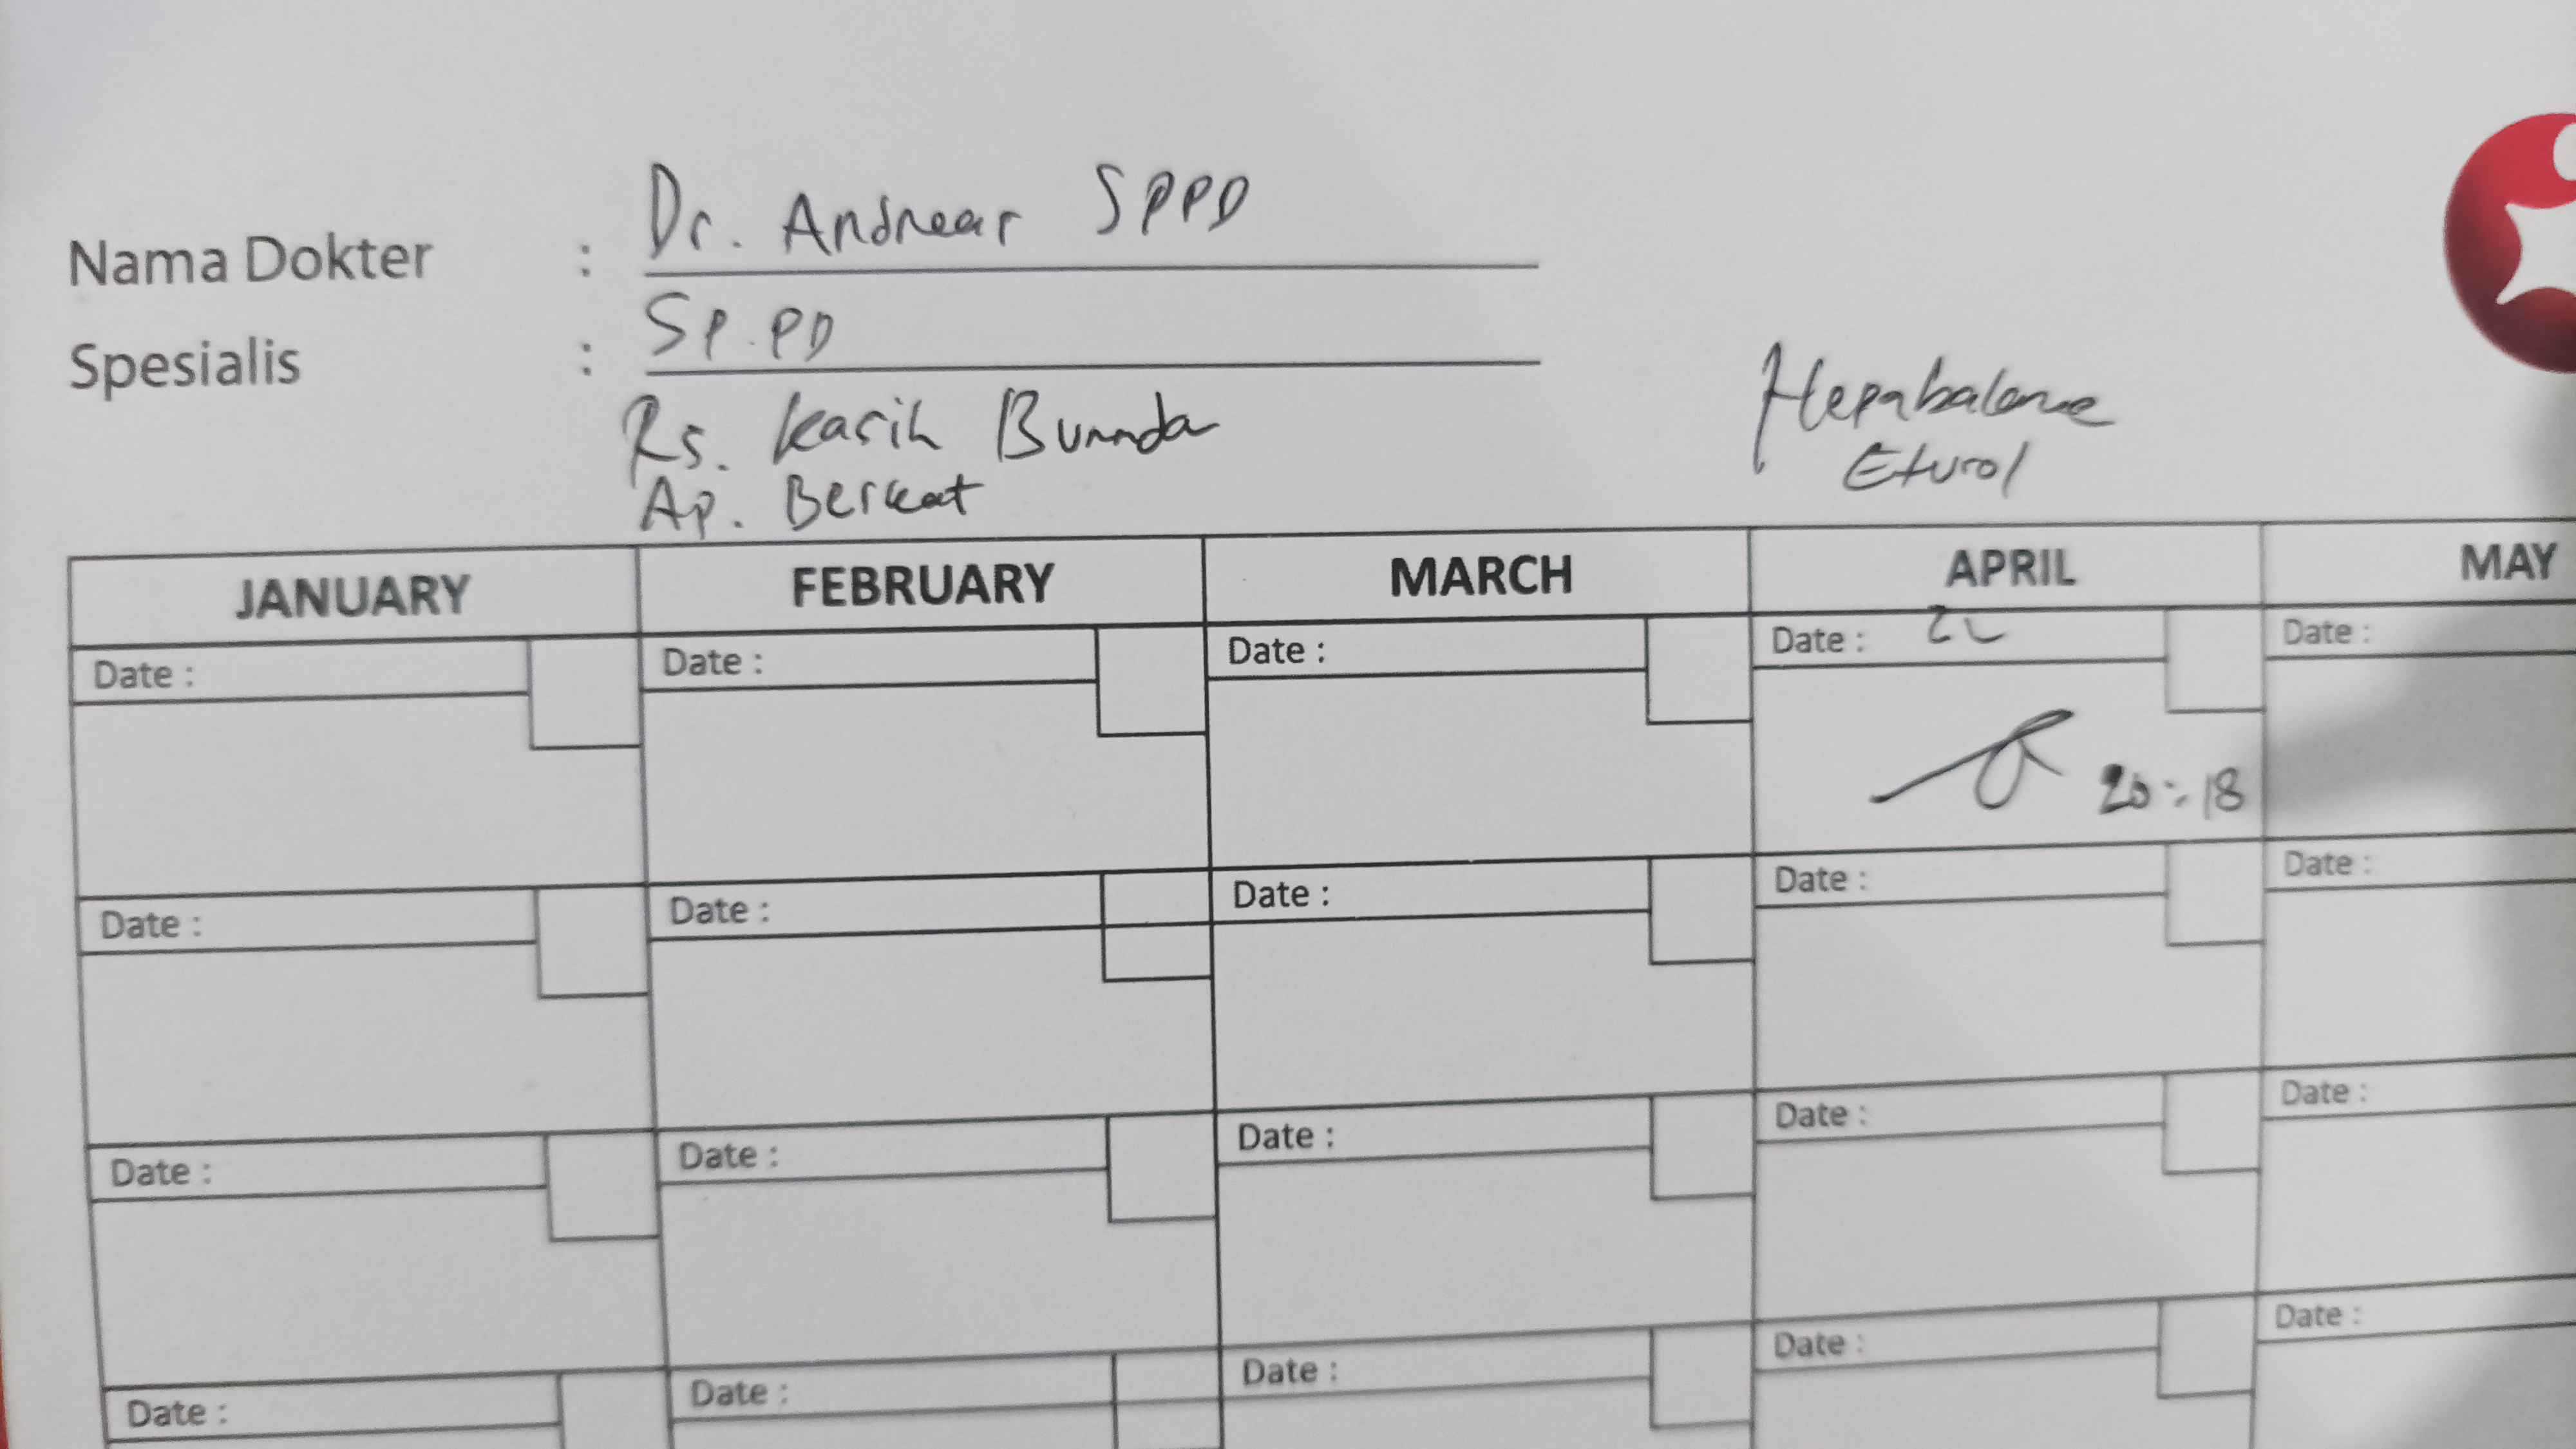 Nama Dokter : Dr. Andreas SPPD
Spesialis : SP.PD
Rs. Kasih Bunnda
Ap. Berkat
Hepabalance
Eturol
JANUARY FEBRUARY MARCH APRIL MAY
Date : Date : Date : Date : 22 Date :
20 : 18
Date : Date : Date : Date : Date :
Date : Date : Date : Date : Date :
Date : Date : Date : Date : Date :